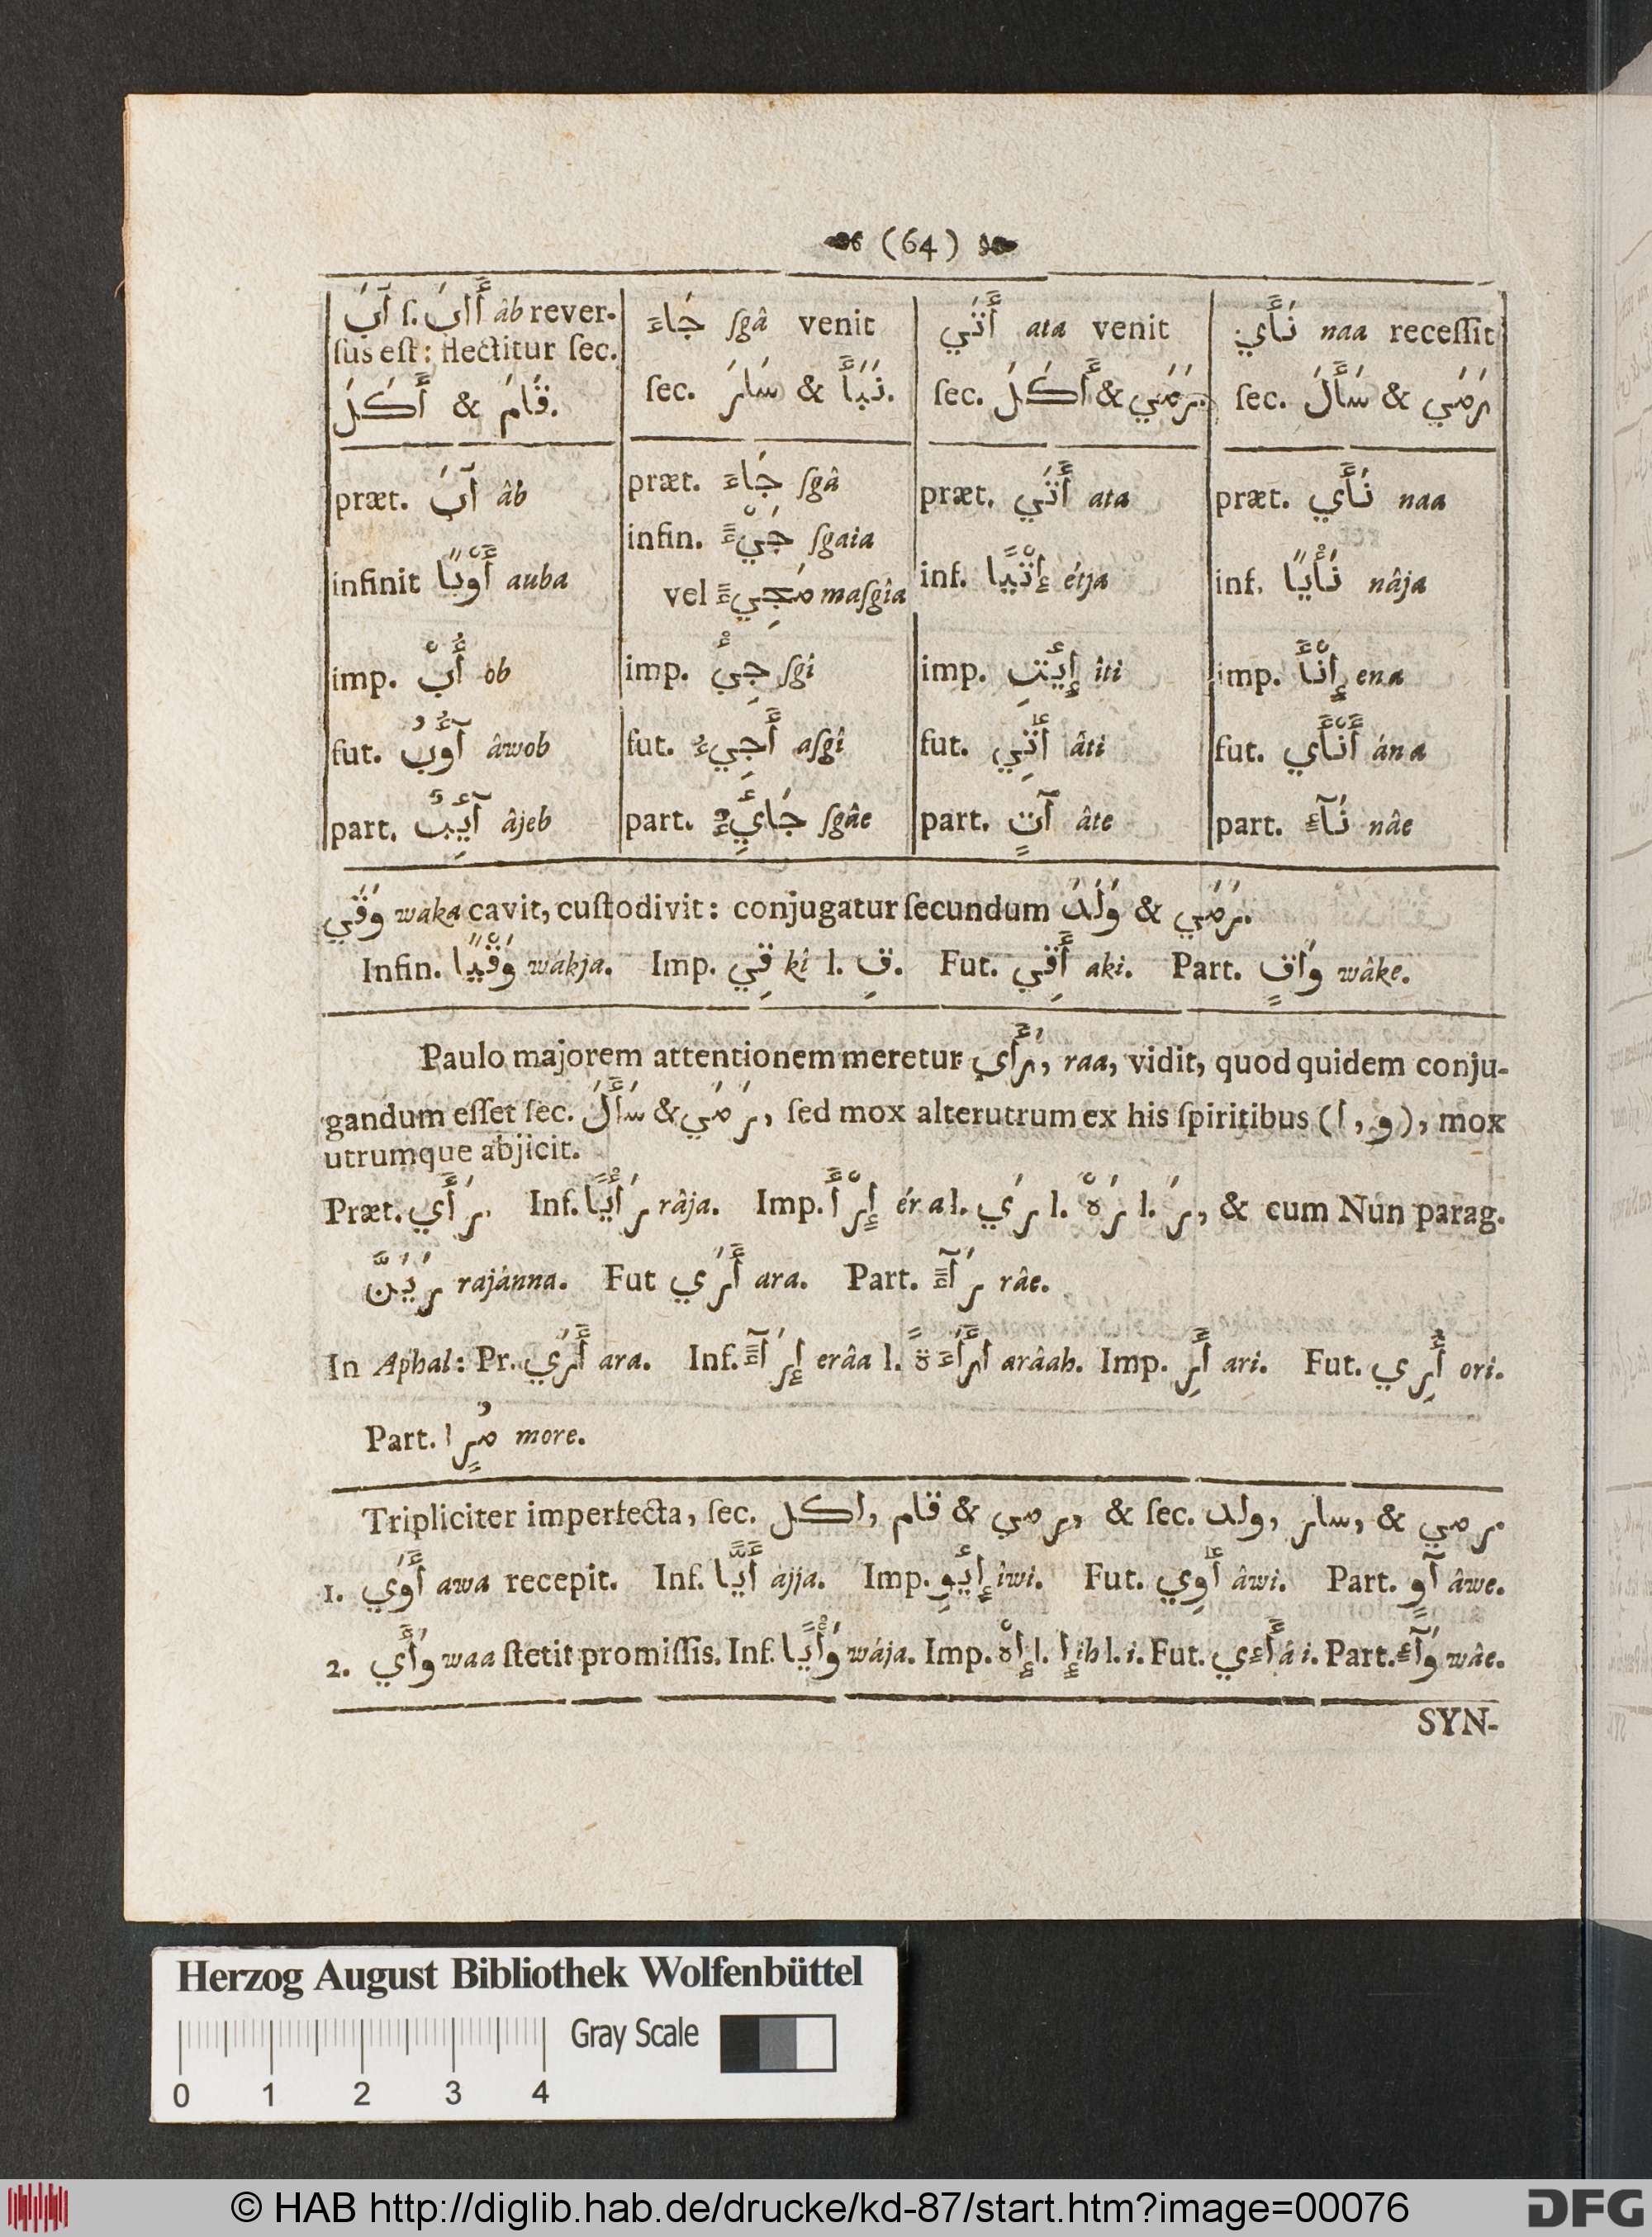 (64)
آبَ ſ. أَابَ âb rever-
ſus eſt: flectitur ſec.
أَكَلَ & قَامَ.
جَاءَ ſgâ venit
ſec. سَارَ & نَبَأَ.
أَتَي ata venit
ſec. أَكَلَ & رَمَي.
نَأَي naa receſſit
ſec. سَأَلَ & رَمَي
præt. آبَ âb
infinit أَوْبًا auba
imp. أُبْ ob
fut. آوُبُ âwob
part. آئِبٌ âjeb
præt. جَاءَ ſgâ
infin. جَيْءً ſgaia
vel مَجِيءً maſgîa
imp. جِئْ ſgi
fut. أَجِيءُ aſgî
part. جَايِءٌ ſgâe
præt. أَتَي ata
inf. إِتْيًا étja
imp. إِيْتِ îti
fut. أٰتِي âti
part. آتٍ âte
præt. نَأَي naa
inf. نَأْيًا nâja
imp. إِنْأَ ena
fut. أَنْأَي ána
part. نَآءٍ nâe
وَقَي waka cavit, cuſtodivit: conjugatur ſecundum وَلَدَ & رَمَي.
Infin. وَقْيًا wákja. Imp. قِي kî l. قِ. Fut. أَقِي aki. Part. وَاقٍ wâke.
Paulo majorem attentionem meretur رَأَي, raa, vidit, quod quidem conju-
gandum eſſet ſec. سَأَلَ & رَمَي, ſed mox alterutrum ex his ſpiritibus (و, ا), mox
utrumque abjicit.
Præt. رَأَي. Inf. رَأْيًا râja. Imp. إِرْأَ ér a l. رَي l. رَهْ l. رَ, & cum Nun parag.
رَيَنَّ rajánna. Fut أَرَي ara. Part. رَآءٍ râe.
In Aphal: Pr. أَرَي ara. Inf. إِرَآءً erâa l. ارَأَءَةً arâah. Imp. أَرِ ari. Fut. أُرِي ori.
Part. مُرٍا more.
Tripliciter imperfecta, ſec. اكل, قام & رمي, & ſec. ولد, سار, & رمي.
1. أَوَي awa recepit. Inf. أَيًّا ajja. Imp. إِيْوِ îwi. Fut. أٰوِي âwi. Part. آوٍ âwe.
2. وَأَي waa ſtetit promiſſis. Inf. وَأْيًا wája. Imp. إِهْ l. إِ ih l. i. Fut. أَءِي â i. Part. وَآءٍ wâe.
SYN-
Herzog August Bibliothek Wolfenbüttel
Gray Scale
0 1 2 3 4
© HAB http://diglib.hab.de/drucke/kd-87/start.htm?image=00076
DFG